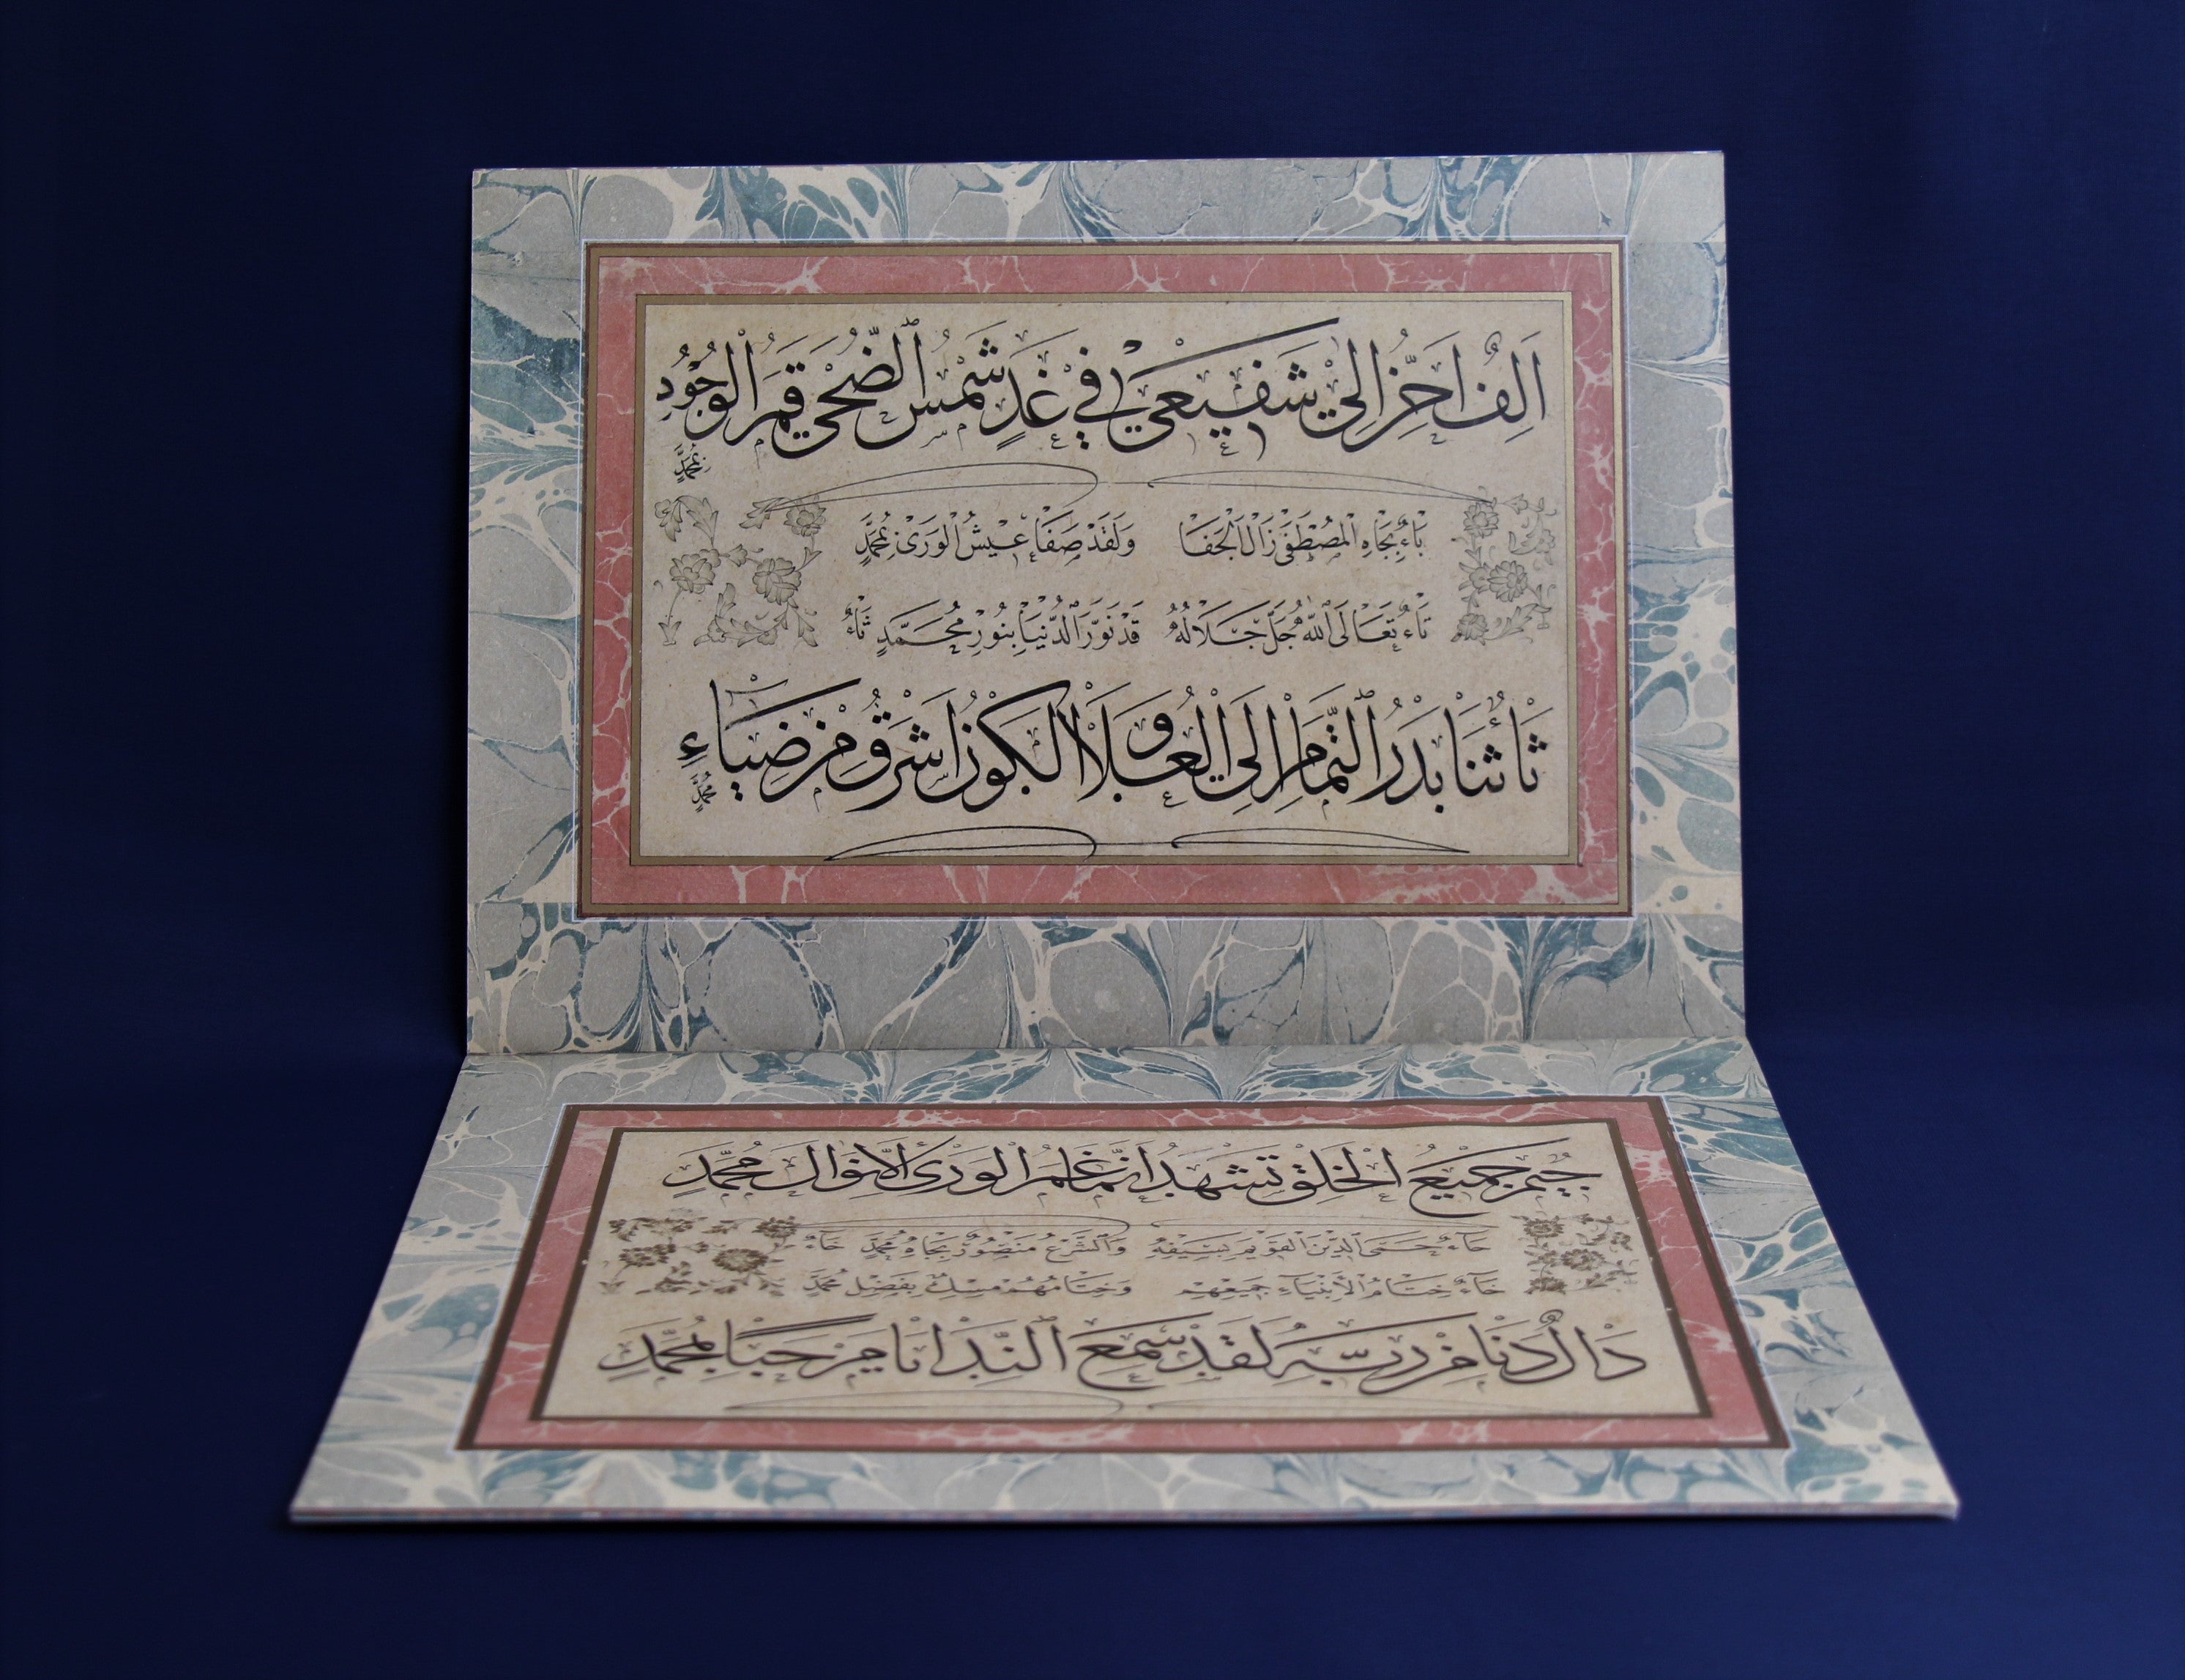 اَلِفٌ اَحِنُّ اِلٰى شَفِيعِي فِي غَدٍ شَمْسُ ٱلضُّحٰى قَمَرُ الْوُجُودِ
مُحَمَّدٍ
بَاءٌ بِجَاهِ الْمُصْطَفٰى زَالَ الْجَفَا وَلَقَدْ صَفَا عَيْشُ الْوَرٰى بِمُحَمَّدٍ
تَاءٌ تَعَالَى ٱللّٰهُ جَلَّ جَلَالُهُ قَدْ نَوَّرَ ٱلدُّنْيَا بِنُورِ مُحَمَّدٍ ثَاءٌ
ثَاءٌ ثَنَا بَدْرُ ٱلتَّمَامِ اِلَى الْعُلَا وَالْكَوْنُ اَشْرَقُ مِنْ ضِيَاءِ
مُحَمَّدٍ
جِيمٌ جَمِيعُ الْخَلْقِ تَشْهَدُ اَنَّمَا غَمَرَ الْوَرٰى نَوَالُ مُحَمَّدٍ
حَاءٌ حَمَى الدِّينَ الْقَوِيمَ بِسَيْفِهِ وَٱلشَّرْعُ مَنْصُورٌ بِجَاهِ مُحَمَّدٍ خَاءٌ
خَاءٌ خِتَامُ الْاَنْبِيَاءِ جَمِيعِهِمْ وَخِتَامُهُمْ مِسْكٌ بِفَضْلِ مُحَمَّدٍ
دَالٌ دَنَا مِنْ رَبِّهِ لَقَدْ سَمِعَ ٱلنِّدَا نَا مَرْحَبًا بِمُحَمَّدٍ